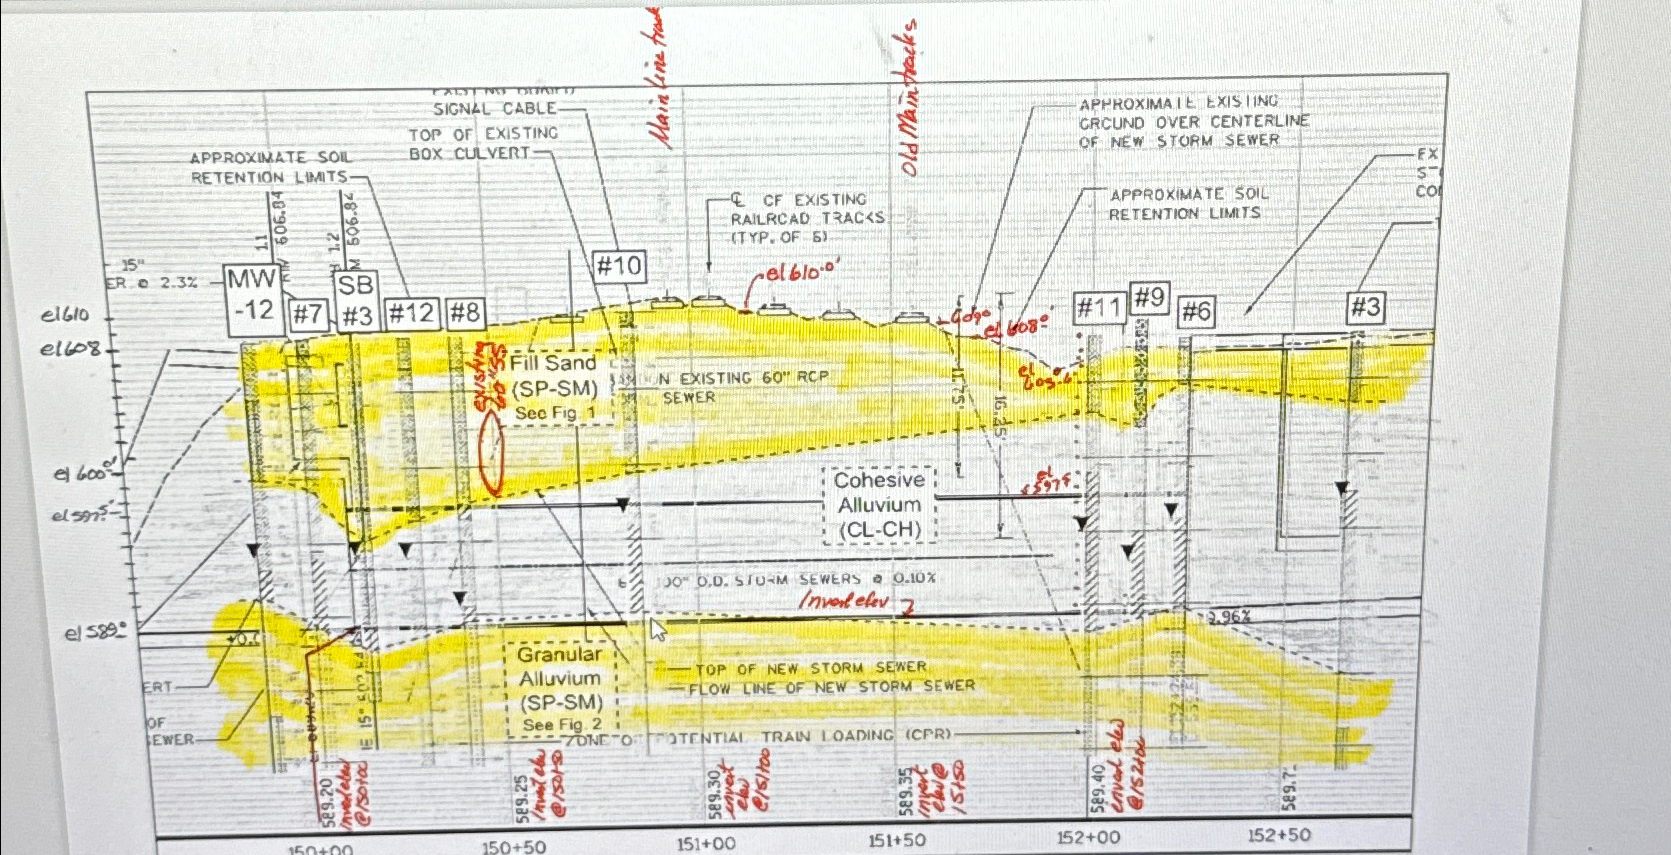 Main Line track
Old Main tracks
SIGNAL CABLE
TOP OF EXISTING
BOX CULVERT
APPROXIMATE SOIL
RETENTION LIMITS
APPROXIMATE EXISTING
GROUND OVER CENTERLINE
OF NEW STORM SEWER
EX
CO
APPROXIMATE SOIL
RETENTION LIMITS
℄ OF EXISTING
RAILROAD TRACKS
(TYP. OF 6)
1.1
606.84
1.2
606.84
15"
ER @ 2.3%
MW
-12
#7
SB
#3
#12
#8
#10
el 610.0'
#11
#9
#6
#3
el 610
el 608
el 600.0'
el 597.5
el 589.0
el 608.0'
existing
Fill Sand
(SP-SM)
See Fig. 1
N EXISTING 60" RCP
SEWER
11.75'
16.25'
el
597.5
Cohesive
Alluvium
(CL-CH)
00" O.D. STORM SEWERS @ 0.10%
Invert elev
2.96%
Granular
Alluvium
(SP-SM)
See Fig. 2
TOP OF NEW STORM SEWER
FLOW LINE OF NEW STORM SEWER
ERT
OF
SEWER
ZONE O
POTENTIAL TRAIN LOADING (CPR)
589.20
Invert elev
@150+00
589.25
Invert elev
@150+50
589.30
invert
elev
@151+00
589.35
invert
elev@
151+50
589.40
invert elev
@152+00
589.7
150+00
150+50
151+00
151+50
152+00
152+50